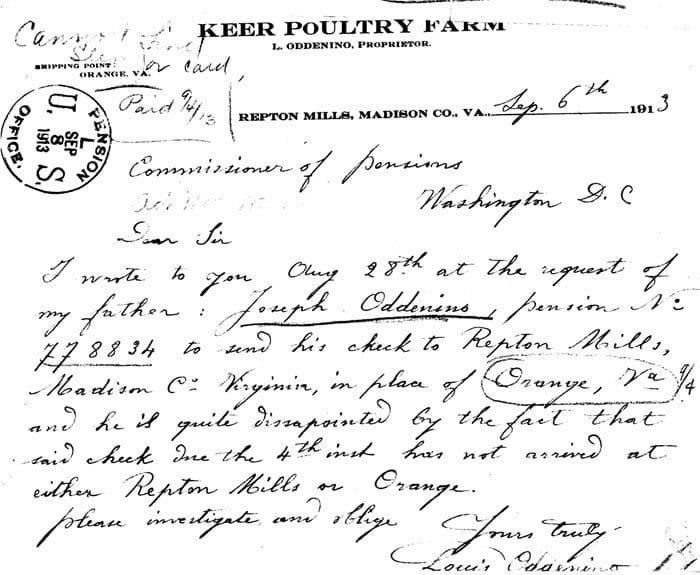 KEER POULTRY FARM
L. ODDENINO, PROPRIETOR.
Cannot find
Slip or card
SHIPPING POINT:
ORANGE, VA.
Paid 9/4/13
REPTON MILLS, MADISON CO., VA., Sep. 6th 1913
U.S. PENSION OFFICE.
L
SEP
8
1913
Commissioner of pensions
Washington D. C
Dear Sir
I wrote to you Aug 28th at the request of
my father : Joseph Oddenino, pension No
778834 to send his check to Repton Mills,
Madison Co Virginia, in place of Orange, Va 9/4
and he is quite dissapointed by the fact that
said check due the 4th inst has not arrived at
either Repton Mills or Orange.
please investigate and oblige
Yours truly
Louis Oddenino